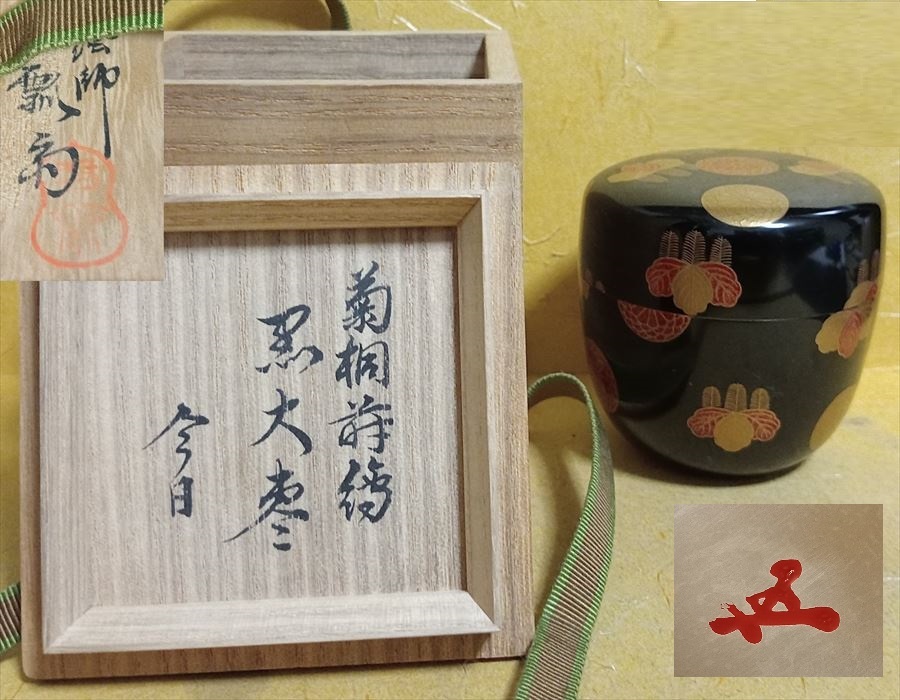 塗師
瓢斎
菊桐蒔絵
黒大棗
今日